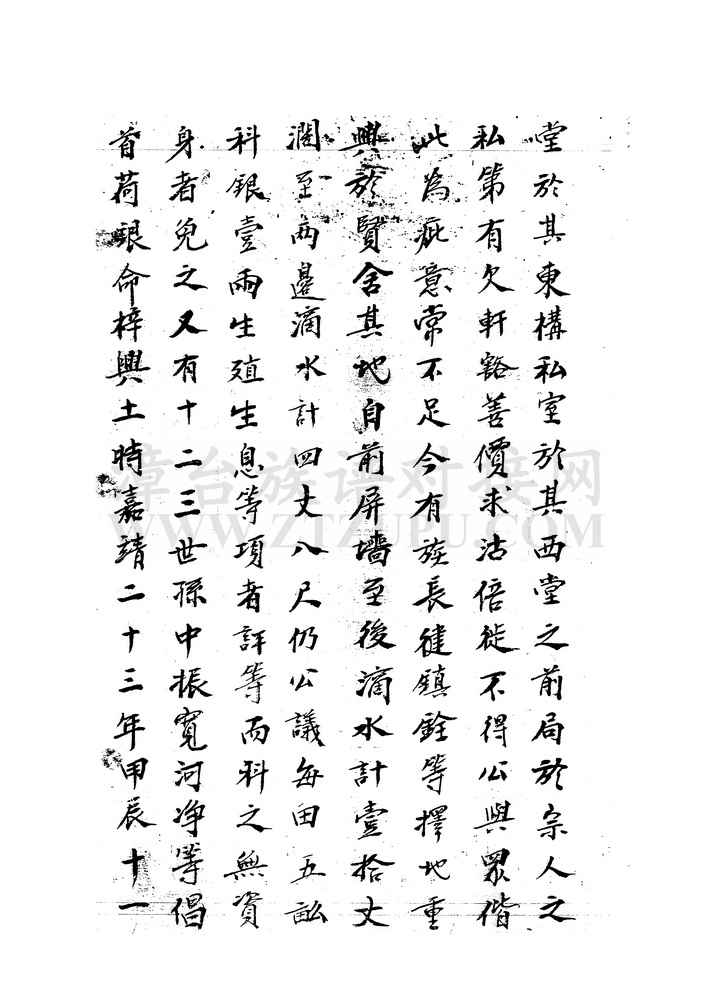 堂於其東構私室於其西堂之前局於宗人之
私第有欠軒豁善價求沽倍徙不得公與眾偕
此為疵意常不足今有族長健鎮銓等擇地重
興於賢舍其地自前屏墻至後滴水計壹拾丈
濶至兩邊滴水計四丈八尺仍公議每田五畝
科銀壹兩生殖生息等項者評等而科之無資
身者免之又有十二三世孫中振寬河净等倡
首荷眼命梓興土時嘉靖二十三年甲辰十一
漳台族谱对接网
WWW.ZTZUPU.COM